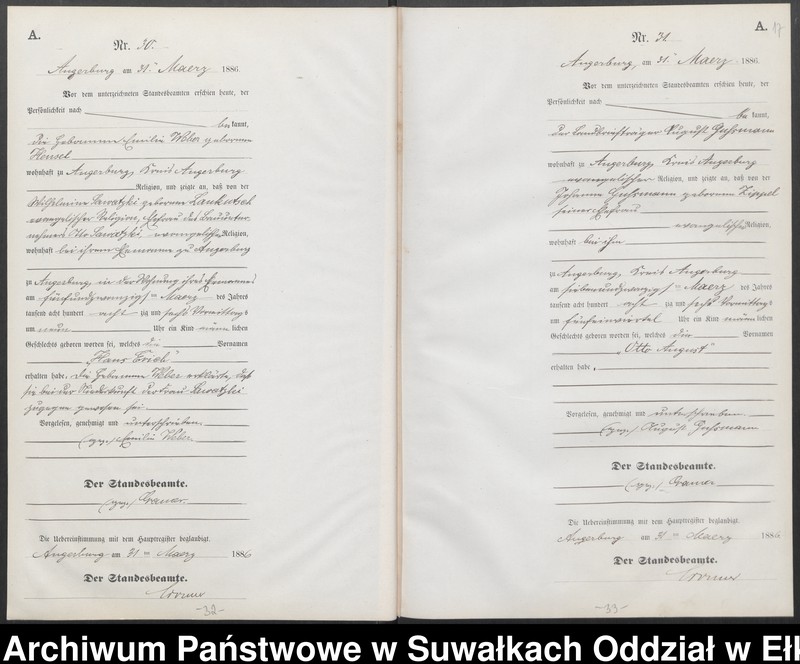 A.
Nr. 30.
Angerburg am 31ten Maerz 1886.
Vor dem unterzeichneten Standesbeamten erschien heute, der
Persönlichkeit nach
be kannt,
die Hebamme Emilie Weber geborene
Hensel
wohnhaft zu Angerburg, Kreis Angerburg
Religion, und zeigte an, daß von der
Wilhelmine Sawatzki geborener
evangelischer Religion, Ehefrau des Bauunter-
nehmers Otto Sawatzki, evangelischer Religion,
wohnhaft bei ihrem Ehemanne zu Angerburg
zu Angerburg, in der Wohnung ihres Ehemannes
am fünfundzwanzigsten Maerz des Jahres
tausend acht hundert acht zig und sechs Vormittags
um neun Uhr ein Kind männ lichen
Geschlechts geboren worden sei, welches die Vornamen
„Hans Erich"
erhalten habe. Die Hebamme Weber erklärte, daß
sie bei der Niederkunft der Frau Sawatzki
zugegen gewesen sei.
Vorgelesen, genehmigt und unterschrieben.
(gez.) Emilie Weber
Der Standesbeamte.
(gez.) Cramer.
Die Uebereinstimmung mit dem Hauptregister beglaubigt.
Angerburg am 31ten Maerz 1886
Der Standesbeamte.
-32-
A.
17
Nr. 31.
Angerburg, am 31ten Maerz 1886.
Vor dem unterzeichneten Standesbeamten erschien heute, der
Persönlichkeit nach
be kannt,
der Landbriefträger August Guhrmann
wohnhaft zu Angerburg, Kreis Angerburg
evangelischer Religion, und zeigte an, daß von der
Johanne Guhrmann geborenen Zippel
seiner Ehefrau
evangelischer Religion,
wohnhaft bei ihm
zu Angerburg, Kreis Angerburg
am siebenundzwanzigsten Maerz des Jahres
tausend acht hundert acht zig und sechs Vormittags
um fünfeinviertel Uhr ein Kind männ lichen
Geschlechts geboren worden sei, welches die Vornamen
„Otto August"
erhalten habe.
Vorgelesen, genehmigt und unterschrieben.
(gez.) August Guhrmann
Der Standesbeamte.
(gez.) Cramer
Die Uebereinstimmung mit dem Hauptregister beglaubigt.
Angerburg am 31ten Maerz 1886
Der Standesbeamte.
-33-
Archiwum Państwowe w Suwałkach Oddział w Ełk